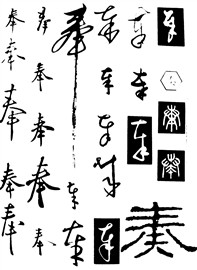 奉奉奉奉奉奉
奉奉奉奉奉
奉奉奉
奉奉奉奉奉
奉奉奉
奉奉奉
奉